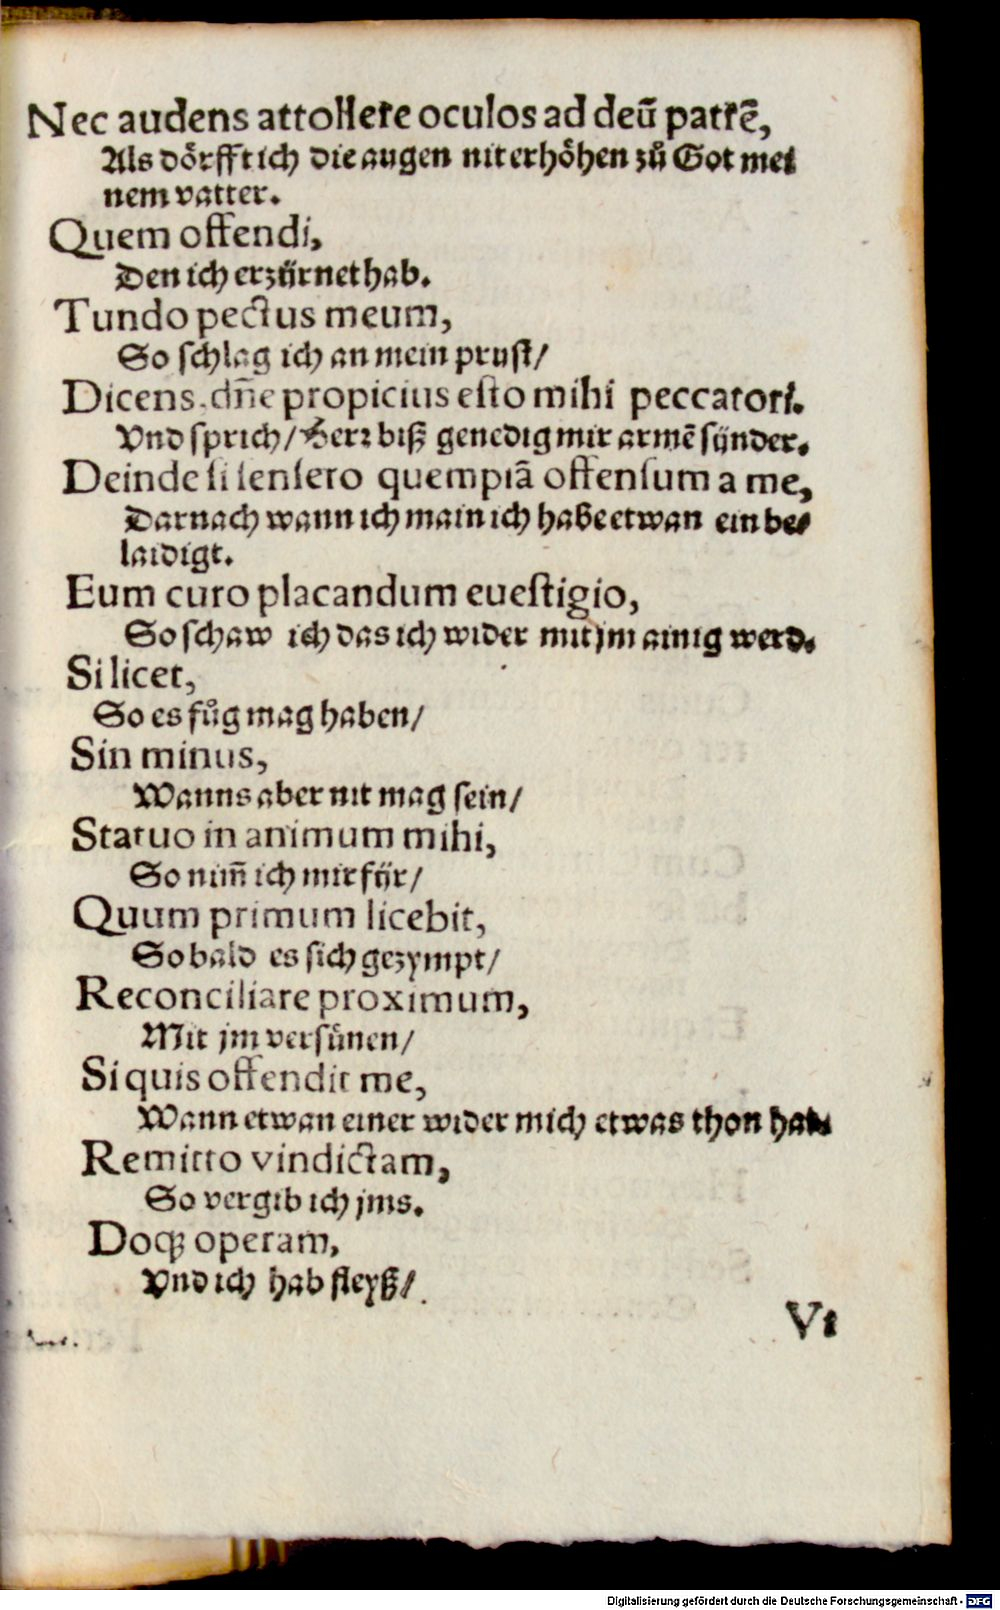 Nec audens attollere oculos ad deū patrē,
Als dörfft ich die augen nit erhöhen zů Got mei
nem vatter.
Quem offendi,
Den ich erzürnet hab.
Tundo pectus meum,
So schlag ich an mein prust/
Dicens, dñe propicius esto mihi peccatori.
Vnd sprich/ Herr biß genedig mir armē sünder.
Deinde si sensero quempiā offensum a me,
Darnach wann ich main ich habe etwan ein be⸗
laidigt.
Eum curo placandum euestigio,
So schaw ich das ich wider mit jm ainig werd.
Si licet,
So es fůg mag haben/
Sin minus,
Wanns aber nit mag sein/
Statuo in animum mihi,
So nim̄ ich mir für/
Quum primum licebit,
So bald es sich gezympt/
Reconciliare proximum,
Mit jm versünen/
Si quis offendit me,
Wann etwan einer wider mich etwas thon hat.
Remitto vindictam,
So vergib ich jms.
Doqꝫ operam,
Vnd ich hab fleyß/
Vt
Digitalisierung gefördert durch die Deutsche Forschungsgemeinschaft - DFG